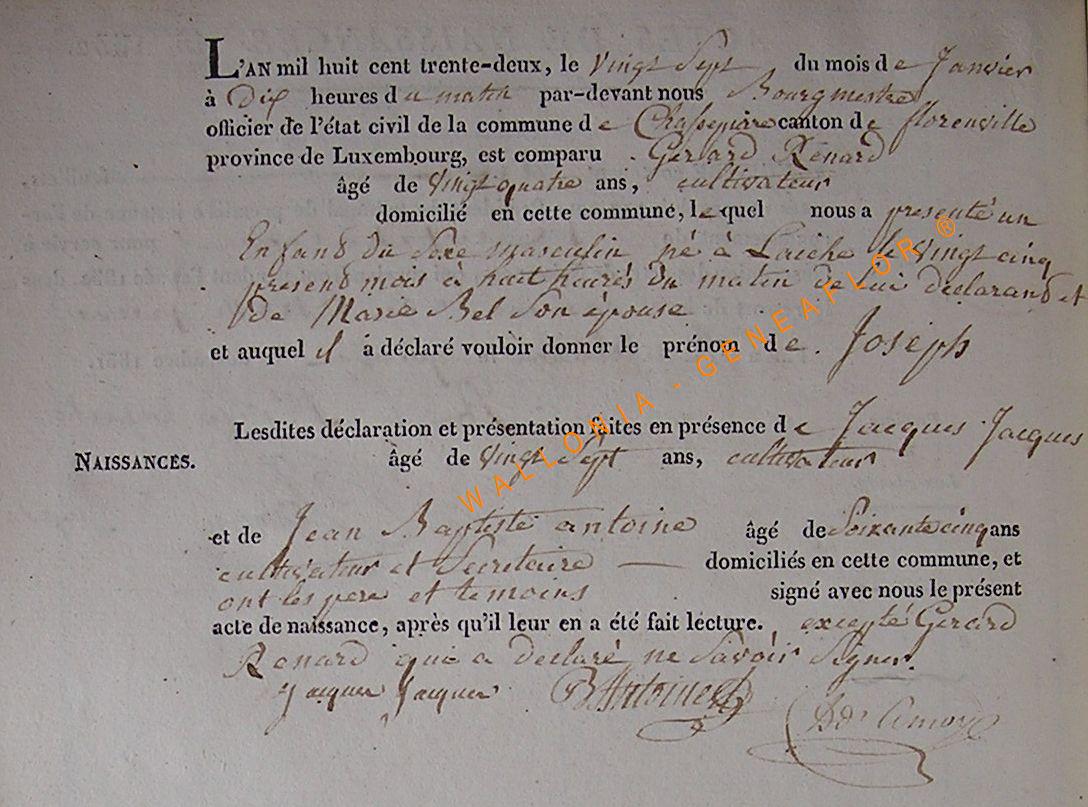 L'AN mil huit cent trente-deux, le Vingt Sept du mois de Janvier
à Dix heures du matin par-devant nous Bourgmestre
officier de l'état civil de la commune de Chassepierre canton de florenville
province de Luxembourg, est comparu Gerard Renard
âgé de Vingt quatre ans, cultivateur
domicilié en cette commune, lequel nous a presenté un
Enfand du Sexe masculin né à Laiche le vingt cinq
presend mois à huit heures du matin de lui déclarand et
De Marie Bel Son épouse
et auquel il a déclaré vouloir donner le prénom de Joseph
Lesdites déclaration et présentation faites en présence de Jacques Jacques
NAISSANCES. âgé de Vingt Sept ans, cultivateur
et de Jean Baptiste antoine âgé de Soixante cinq ans
cultivateur et Secretaire — domiciliés en cette commune, et
ont les pere et temoins signé avec nous le présent
acte de naissance, après qu'il leur en a été fait lecture. excepté Gerard
Renard qui a declaré ne Savoir Signer.
Jacques Jacques
WALLONIA - GENEAFLOR ®